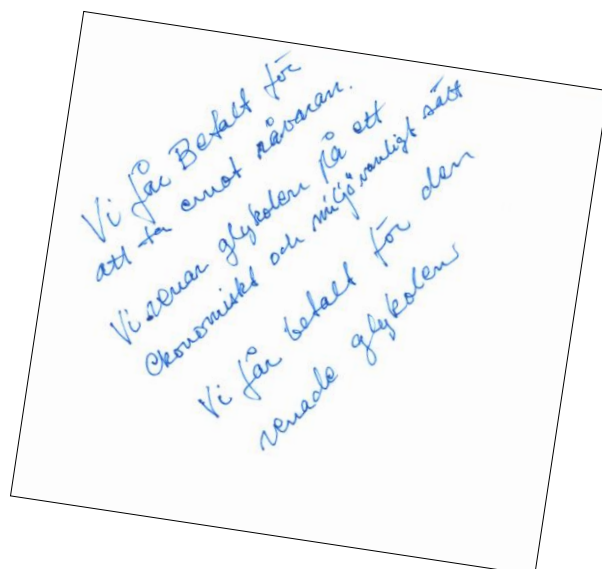 Vi får Betalt för
att ta emot råvaran.
Vi renar glykolen på ett
ekonomiskt och miljövänligt sätt
Vi får betalt för den
renade glykolen